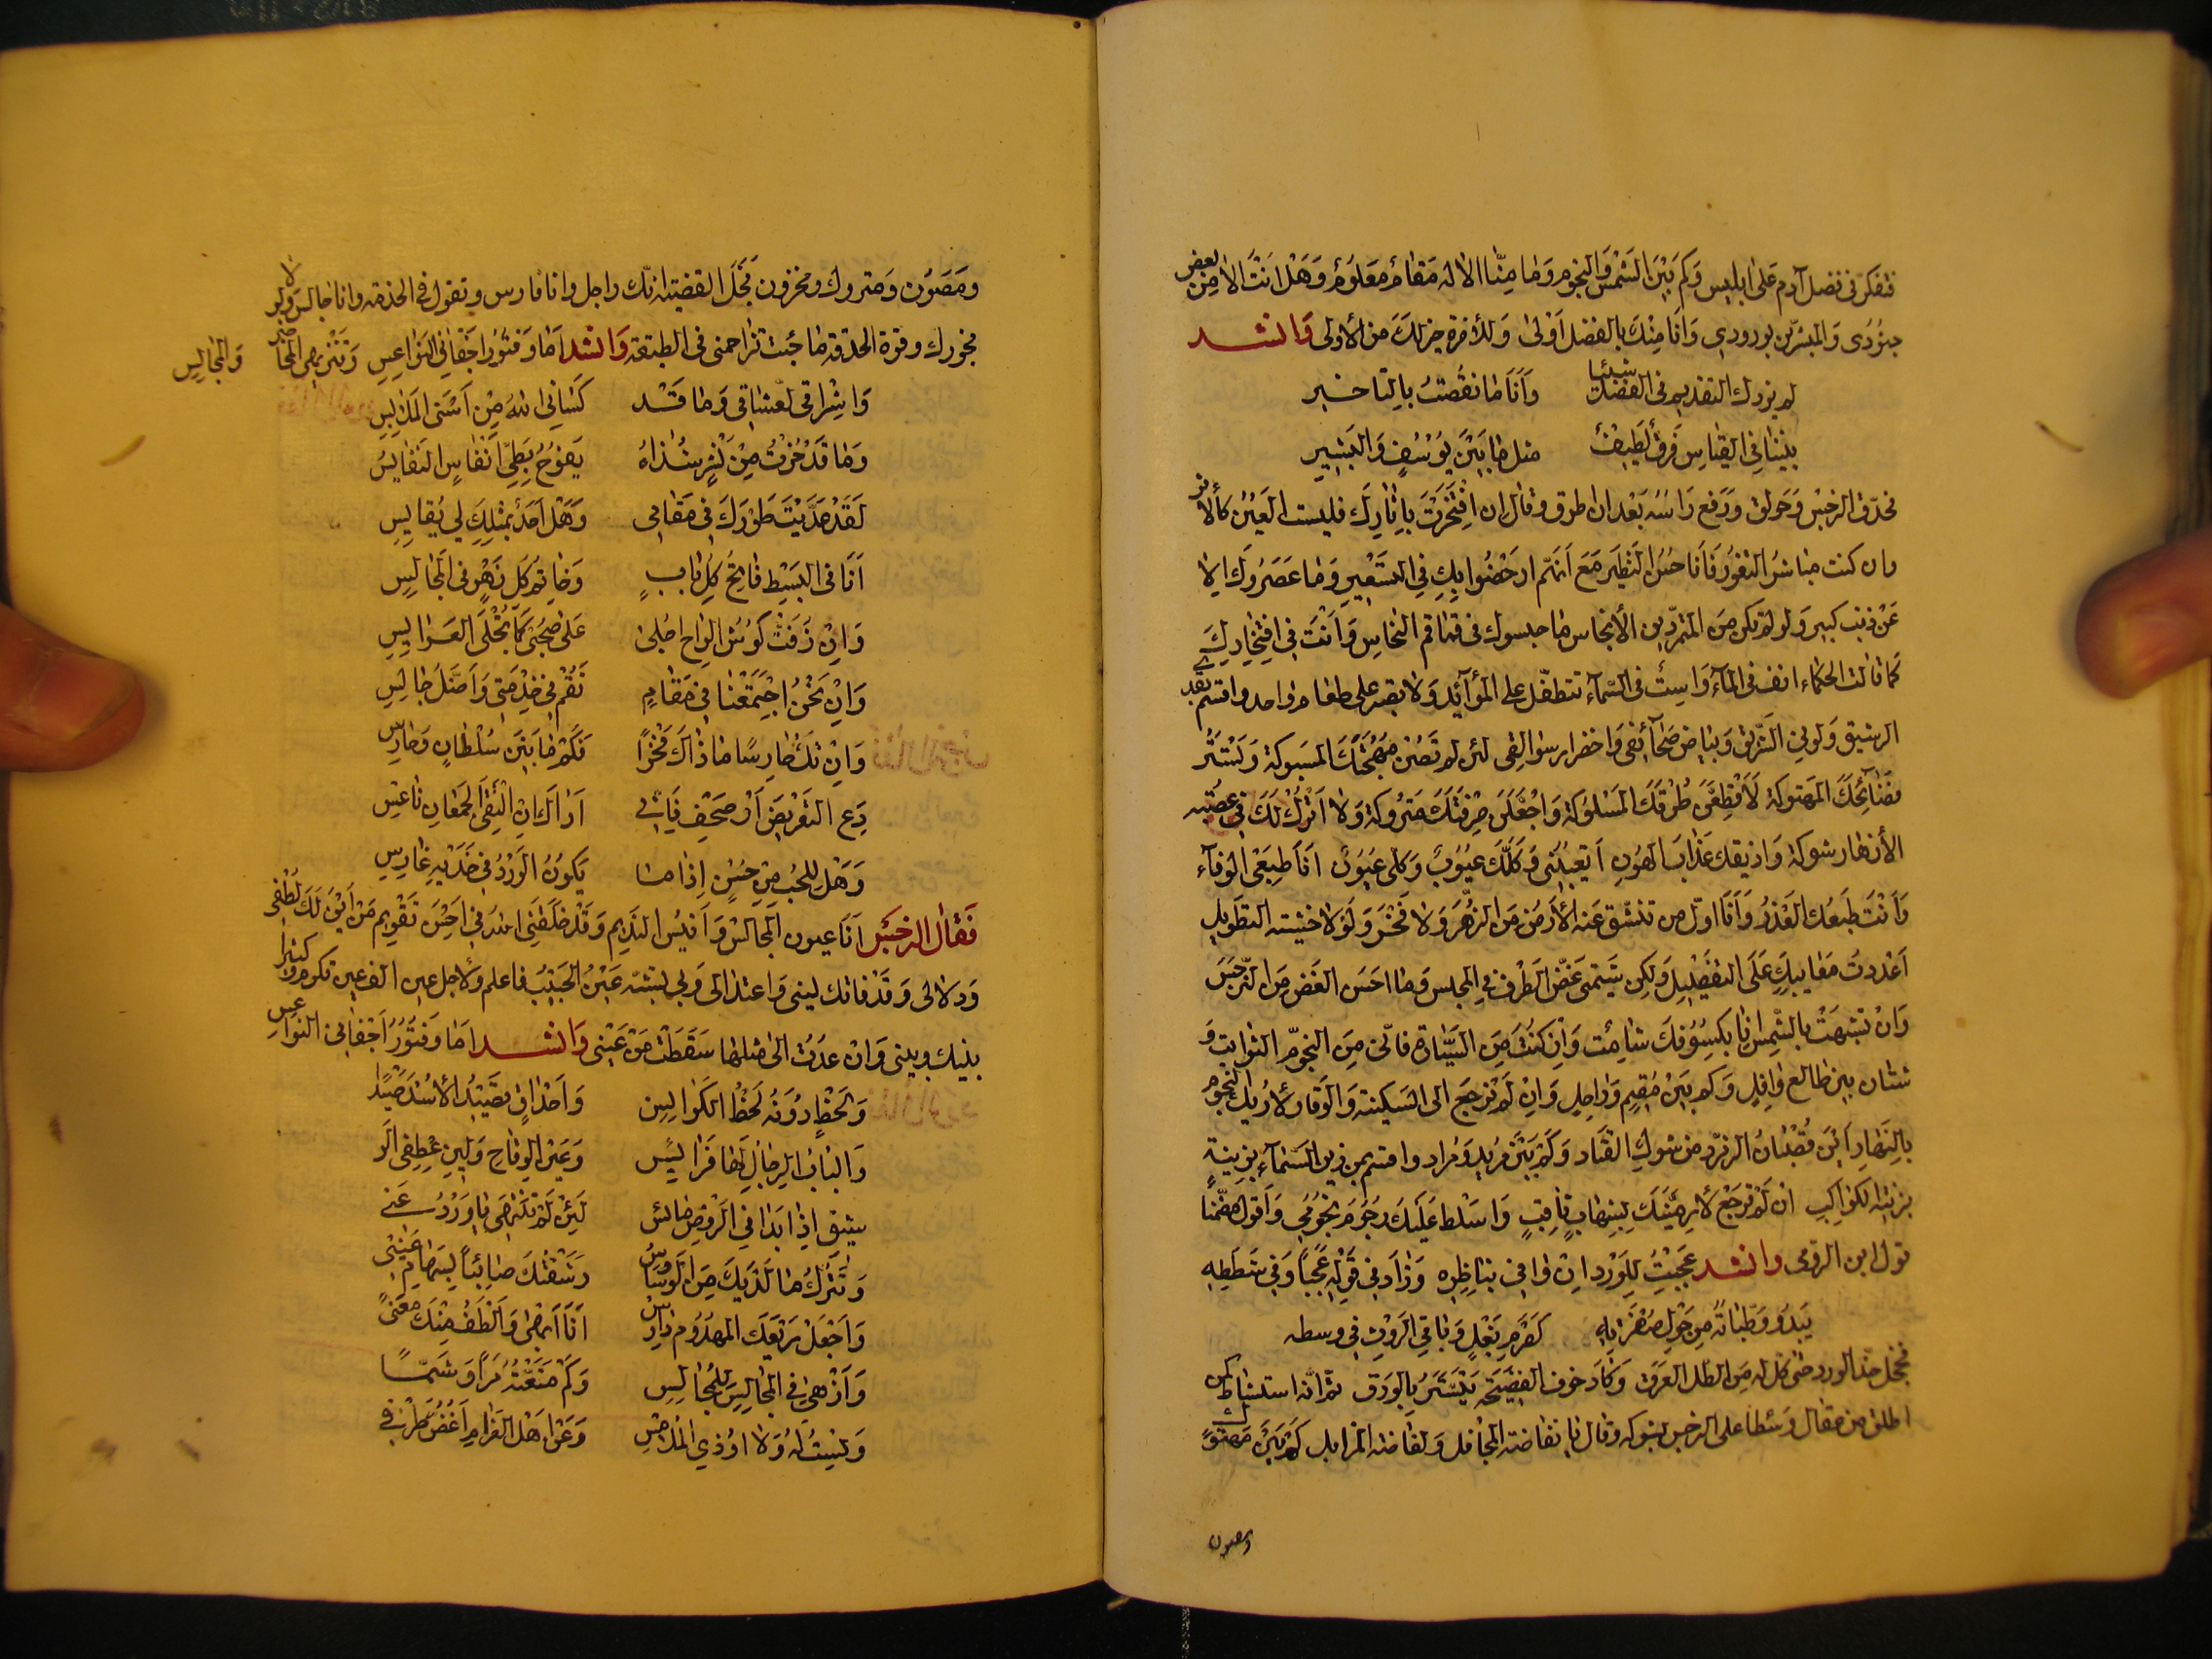 فتفكر في فضل آدم على ابليس وكم بين الشمس والنجوم وما منا الا له مقام معلوم وهل انت الا من بعض
جنودى والمبشرين بورودي وانا منك بالفضل اولى وللآخرة خير لك من الأولى وانشد
لم يزدك التقديم في الفضل شيئا وانا ما نقصت بالتاخير
بيننا في القياس فرق لطيف مثل ما بين يوسف والبشير
فحدق النرجس وحولق ورفع راسه بعد ان اطرق وقال ان افتخرت باثارك فليست العين كالاثر
وان كنت مباشر الثغور فانا حسن النظير مع انهم ارخصوا بك في التسعير وما عصروك الا
عن ذنب كبير ولو لم تكن من المتمردين الأنجاس ما حبسوك في قماقم النحاس وانت في افتخارك
كما قالت الحكماء انف في الماء واست في السماء تتطفل على الموائد ولا تصبر على طعام واحد واقسم بقدي
الرشيق ولوني الشريق وبياض صحائفي واخضرار سوالفي لئن لم تصن مهجتك المسبوكة وتستر
فضائحك المهتوكة لأقطعن طرقك المسلوكة واجعلن حرفتك متروكة ولا اترك لك في عصبة
الأزهار شوكة واذيقك عذاب الهون اتعيبني وكلك عيوب وكلي عيون انا طبعي الوفاء
وانت طبعك الغدر وانا اول من تنشق عنه الأرض من الزهر ولا فخر ولولا خشية التطويل
اعددت معايبك على التفصيل ولكن شيمتي غض الطرف في المجلس وما احسن الغض من النرجس
وان تشبهت بالشمس فانا بكسوفك شامت وان كنت من السيارة فاني من النجوم الثوابت و
شتان بين طالع وافل وكم بين مقيم وراحل وان لم ترجع الى السكينة والوقار لأريك النجوم
بالنهار اين قضبان الزمرد من شوك القتاد وكم بين مريد ومراد واقسم بمن زين السماء بزينة
بزينة الكواكب ان لم ترجع لأرمينك بشهاب ثاقب واسلط عليك رجوم نجومي واقول مضمنا
قول ابن الرومى وانشد عجبت للورد ان وافى بناظره وزاد في قوله عجبا وفي شططه
يبدو وطبانه من حول صفرته كصرم بغل وباقي الروث في وسطه
فخجل خد الورد حتى كلله من الطل العرق وكاد خوف الفضيحة يتستر بالورق ثم انه استشاط كمن
اطلق من عقال وسطا على النرجس بشوكه وقال يا نفاضة المحافل ولفاضة المزابل كم بين مهتوك
ومصون
ومصون ومتروك ومخزون نجل القضية انك راجل وانا فارس وتقول في الخدمة وانا جالس ولولا
نجورك وقوة الحدقة ما جئت تزاحمني في الطبقة وانشد اما وفتور اجفاني النواعس ونشري في المحاضر والمجالس
واشراقي لعشاقي وما قد كساني الله من اسنى الملابس
وما قد حزت من نشر شذاه يفوح بطي انفاس النفايس
لقد عديت طورك في مقامي وهل احد بمثلك لي يقايس
انا في البسط فاتح كل باب وخاتم كل زهر في المجالس
وان زفت كؤس الراح اجلى على صحبي كما تجلى العرايس
وان نحن اجتمعنا في مقام نقم في خدمتي واصل جالس
وان تك حارسا ما ذاك فخرا فكم ما بين سلطان وحارس
دع التعريض او صحف فاني اراك ان التقى الجمعان ناعس
وهل للحب من حسن اذا ما يكون الورد في خديه غارس
فقال النرجس انا عيون المجالس وانيس النديم وقد خلقني الله في احسن تقويم من اين لك لطفي
ودلالى وقد فاتك ليني واعتدالى ولي تشبه عين الحبيب فاعلم ولاجل عين الف عين تكرم وكثيرا
بينك وبيني وان عدت الى مثلها سقطت من عيني وانشد اما وفتور اجفانى النواعس
ولحظ دونه لحظ الكوانس واحداق تصيد الأسد صيدا
والباب الرجال لها فرائس وعين الوقاح ولين عطفى الو
شيق اذا بدا في الروض مائس لئن لم تنتهى يا ورد عنى
وتترك ما لديك من الوساوس رشقتك صائبا بسهام عيني
واجعل ربعك المهدوم دارس انا ابهى والطف منك معنى
وازهى في المجالس للمجالس وكم متعته مرأ وشما
ولست له ولا اوذي الملامس وعن اهل الغرام اغض طرفي